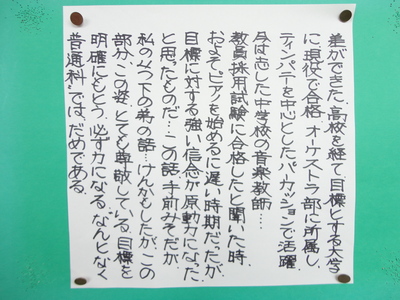 差ができた。高校を経て、目標とする大学
に現役で合格。オーケストラ部に所属し、
ティンパニーを中心としたパーカッションで活躍。
今は志した中学校の音楽教師…。
教員採用試験に合格したと聞いた時、
およそピアノを始めるに遅い時期だったが、
目標に対する強い信念が原動力になった
と思ったものだ…。この話、手前みそだが
私の八つ下の弟の話…けんかもしたが、この
部分、この姿、とても尊敬している。目標を
明確にもとう。必ず力になる。なんとなく
普通科では、だめである。